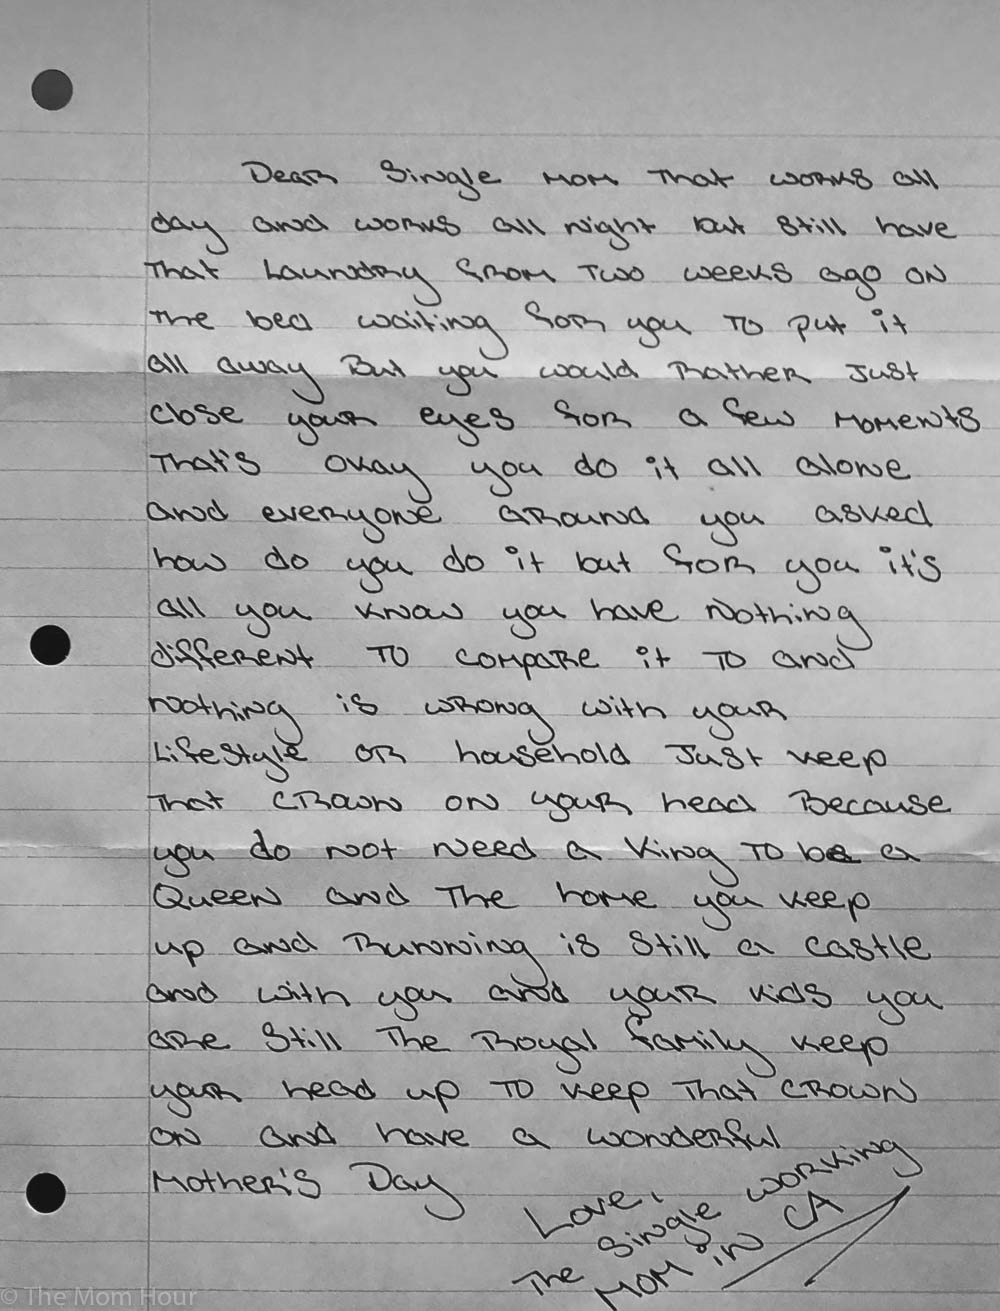 Dear Single mom that works all
day and works all night but still have
that laundry from two weeks ago on
the bed waiting for you to put it
all away But you would Rather Just
close your eyes for a few moments
that's okay you do it all alone
and everyone around you asked
how do you do it but for you it's
all you know you have nothing
different to compare it to and
nothing is wrong with your
Lifestyle or household Just keep
that crown on your head Because
you do not need a King to be a
Queen and the home you keep
up and Running is still a castle
and with you and your kids you
are still the Royal family keep
your head up to keep that crown
on and have a wonderful
Mother's Day
Love,
The Single working
Mom in CA
© The Mom Hour